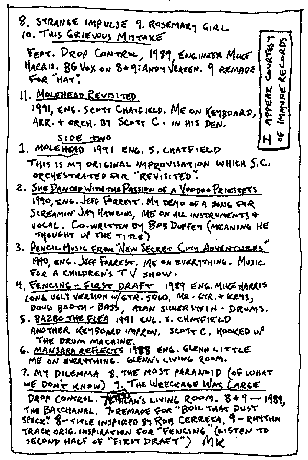 8. STRANGE IMPULSE 9. ROSEMARY GIRL
10. THIS GRIEVOUS MISTAKE
FEAT. DROP CONTROL, 1989, ENGINEER MIKE
HARRIS. BG VOX ON 8+9: ANDY 9 REMADE
FOR "HAT".
11. MOLEHEAD REVISITED
1991, ENG. SCOTT CHATFIELD. ME ON KEYBOARD,
ARR. + ORCH. BY SCOTT C. IN HIS DEN.
SIDE TWO
1. MOLEHEAD 1991 ENG. S. CHATFIELD
THIS IS MY ORIGINAL IMPROVISATION WHICH S.C.
ORCHESTRATED FOR "REVISITED".
2. SHE DANCED WITH THE PASSION OF A VOODOO PRINCESS
1990, ENG. JEFF FORREST. MY DEMO OF A SONG FOR
SCREAMIN' JAY HAWKINS, ME ON ALL INSTRUMENTS +
VOCAL. CO-WRITTEN BY BOB DUFFEY (MEANING HE
THOUGHT UP THE TITLE)
3. PENCIL MUSIC FROM "NEW SECRET CITY ADVENTURES"
1990, ENG. JEFF FORREST. ME ON EVERYTHING. MUSIC
FOR A CHILDREN'S TV SHOW.
4. FENCING - FIRST DRAFT 1989 ENG. MIKE HARRIS
LONG UGLY VERSION W/GTR. SOLO, MK - GTR. + KEYS,
DOUG BOOTH - BASS, ALAN SILVERSTEIN - DRUMS.
5. THE FLEA 1991 ENG. S. CHATFIELD
ANOTHER KEYBOARD IMPROV, SCOTT C. HOOKED UP
THE DRUM MACHINE.
6. REFLECTS 1988 ENG. GLENN LITTLE
ME ON EVERYTHING. GLENN'S LIVING ROOM.
7. MY DILEMMA 8. THE MOST PARANOID (OF WHAT
WE DON'T KNOW) 9. THE WRECKAGE WAS LARGE
DROP CONTROL. LIVING ROOM. 8+9 - 1989,
THE BACCHANAL. 7-REMADE FOR "BOIL THAT DUST
SPECK". 8-TITLE INSPIRED BY ROB 9-RHYTHM
TRACK ORIG. INSPIRATION FOR "FENCING" (LISTEN TO
SECOND HALF OF "FIRST DRAFT") MK
I APPEAR COURTESY
OF IMMUNE RECORDS